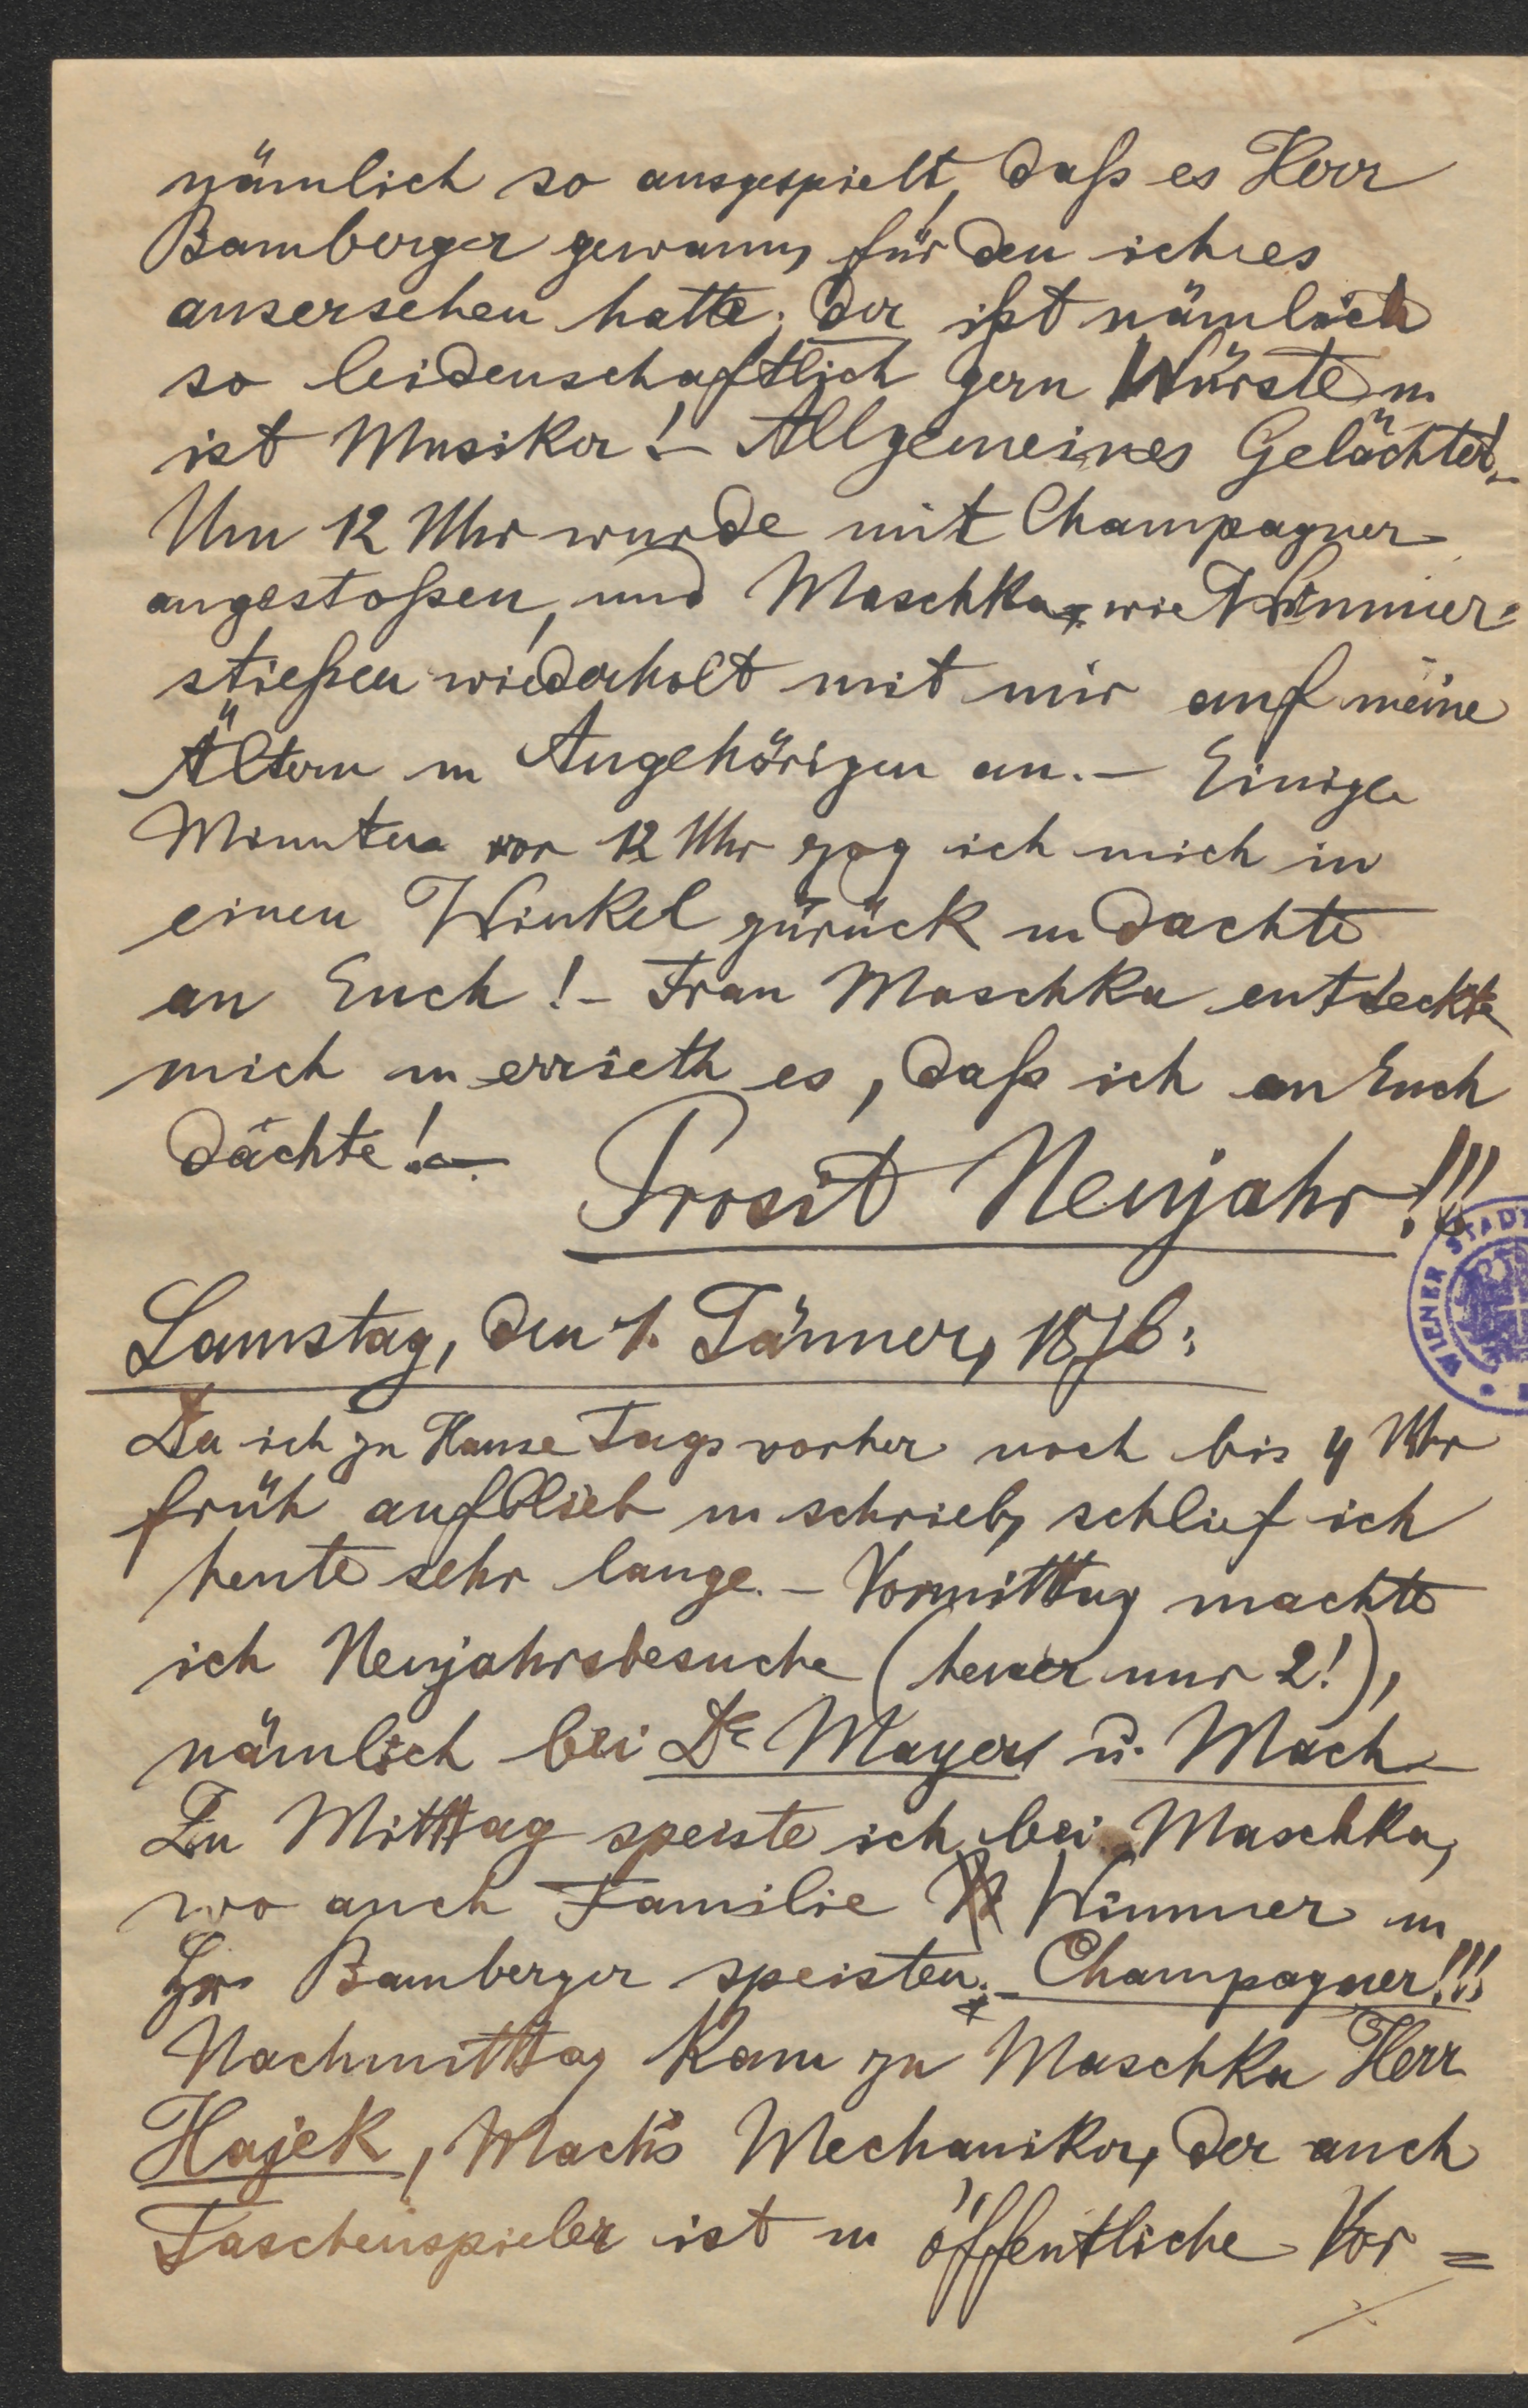 nämlich so ausgespielt, daß es Herr
Bamberger gewann, für den ich es
ausersehen hatte; der ißt nämlich
so leidenschaftlich gern Würste u
ist Musiker! – Allgemeines Gelächter. –
Um 12 Uhr wurde mit Champagner
angestoßen, und Maschka, wie Wimmer
stießen wiederholt mit mir auf meine
Ältern u Angehörigen an. – Einige
Minuten vor 12 Uhr zog ich mich in
einen Winkel zurück u dachte
an Euch! – Frau Maschka entdeckte
mich u errieth es, daß ich an Euch
dächte! –
Prosit Neujahr!!!
Samstag, den 1. Jänner, 1876:
Da ich zu Hause Tags vorher noch bis 4 Uhr
früh aufblieb u schrieb, schlief ich
heute sehr lange. – Vormittag machte
ich Neujahrsbesuche (heuer nur 2!),
nämlich bei Dr Mayer u. Mach –
Zu Mittag speiste ich bei Maschka,
wo auch Familie Wimmer u
Hr Bamberger speisten. – Champagner!!!
Nachmittag kam zu Maschka Herr
Hajek, Mach's Mechaniker, der auch
Taschenspieler ist u öffentliche Vor=
WIENER STADT